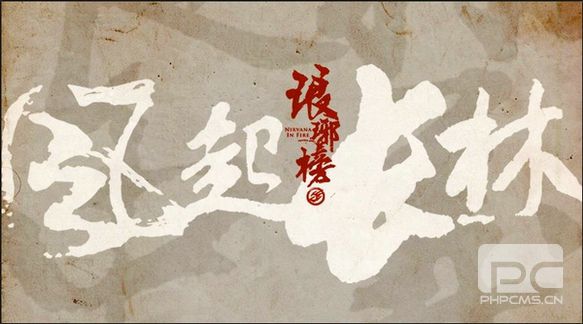 风起长林
琅琊榜
NIRVANA
IN FIRE
PC
PHPCMS.CN